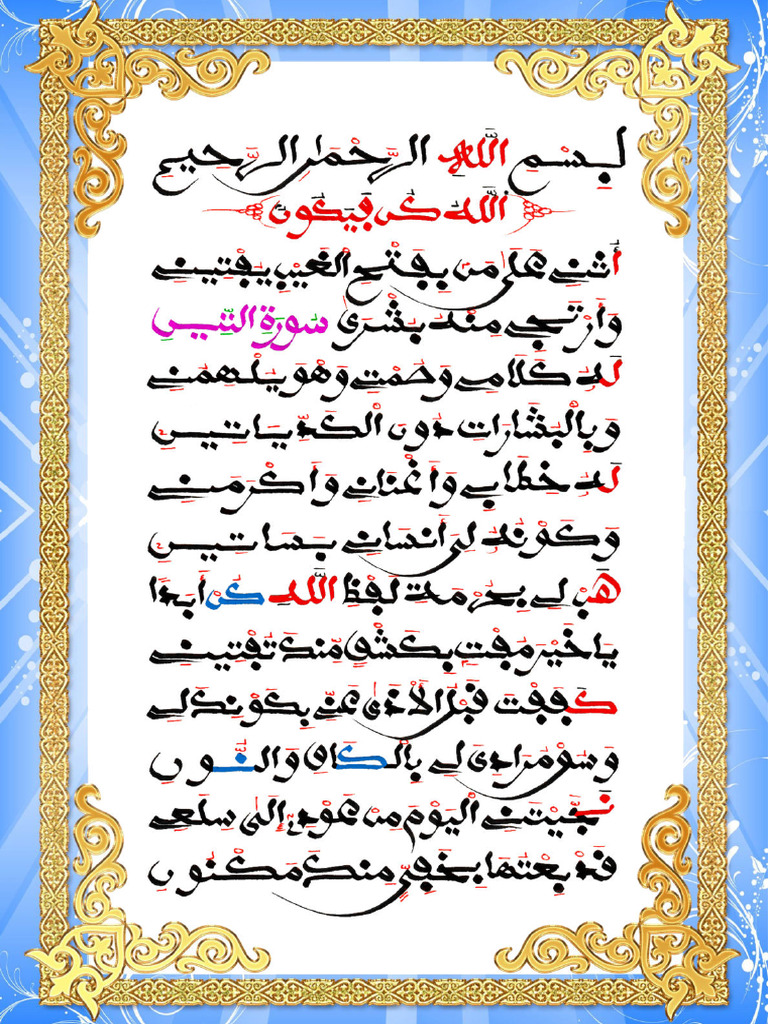 بِسْمِ اللَّهِ الرَّحْمَٰنِ الرَّحِيمِ
اللَّهُ كُن فَيَكُونُ
أُثْنِي عَلَىٰ مَن بِفَتْحِ الْغَيْبِ يُفْتِينِي
وَأَرْتَجِي مِنْهُ بُشْرَىٰ سُورَةِ التِّينِ
لَهُ كَلَامِي وَصُمْتِي وَهْوَ يُلْهِمُنِي
وَبِالْبَشَارَاتِ دُونَ الْكَدِّ يَاتِينِي
لَهُ خِطَابِي وَأَغْنَانِي وَأَكْرَمَنِي
وَكَوْنُهُ لِي أَنْسَانِي بَسَاتِينِي
هَبْ لِي بِحُرْمَةِ لَفْظِ اللَّهِ كُنْ أَبَدًا
يَا خَيْرَ مُفْتٍ بِكَشْفٍ مِّنكَ تُفْتِينِي
كَفَفْتَ قَبْلُ الْأَذَىٰ عَنِّي بِكَوْنِكَ لِي
وَسُقْ مُرَادِي لِي بِالْكَافِ وَالنُّونِ
نَجَّيْتَنِي الْيَوْمَ مِنْ عَوْدٍ إِلَىٰ سِلَعِي
قَدْ بِعْتُهَا بِخَفِيٍّ مِنكَ مَكْنُونِ